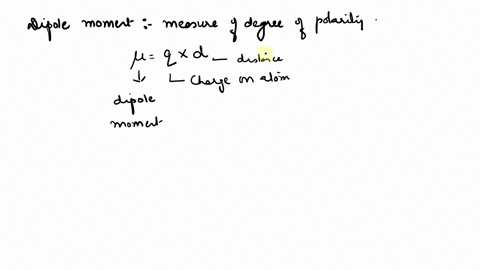 Dipole moment :- measure of degree of polarity.
μ = q × d - distance
↓ Charge on atom
dipole
moment